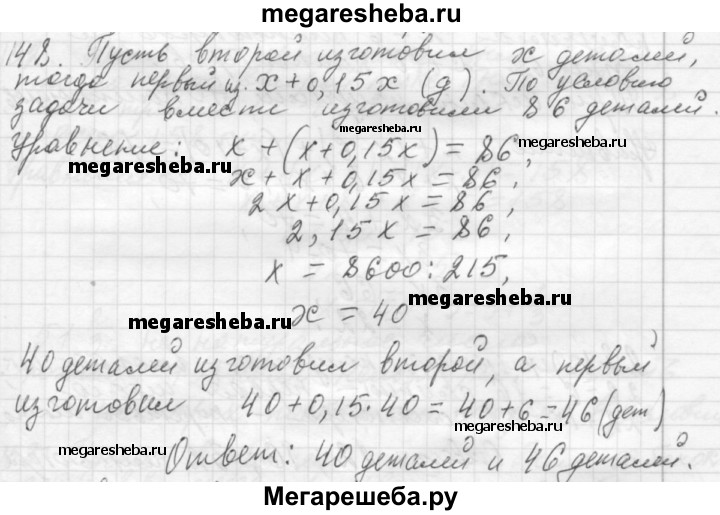 megaresheba.ru
148. Пусть второй изготовил x деталей,
тогда первый из. x + 0,15x (д). По условию
задачи вместе изготовили 86 деталей.
megaresheba.ru
Уравнение: x + (x + 0,15x) = 86,
megaresheba.ru
megaresheba.ru
x + x + 0,15x = 86,
2x + 0,15x = 86,
2,15x = 86,
x = 8600 : 215,
megaresheba.ru
x = 40
megaresheba.ru
40 деталей изготовил второй, а первый
изготовил 40 + 0,15 · 40 = 40 + 6 = 46 (дет)
megaresheba.ru
megaresheba.ru
Ответ: 40 деталей и 46 деталей.
Мегарешеба.ру